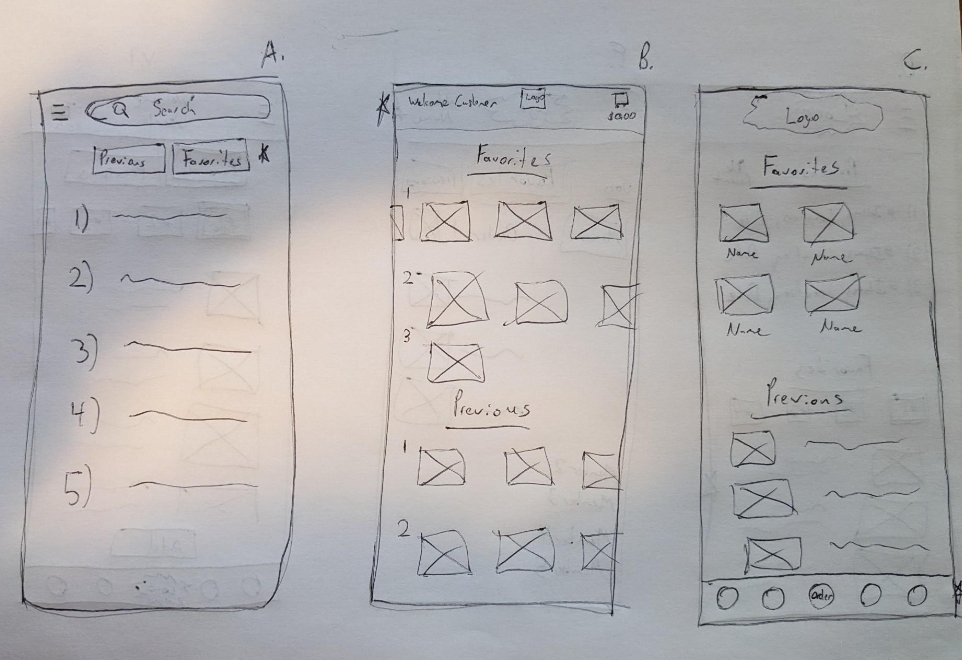 A.
Search
Previous Favorites
1)
2)
3)
4)
5)
B.
Welcome Customer Logo
$0.00
Favorites
1
2
3
Previous
1
2
C.
Logo
Favorites
Name Name
Name Name
Previous
Order